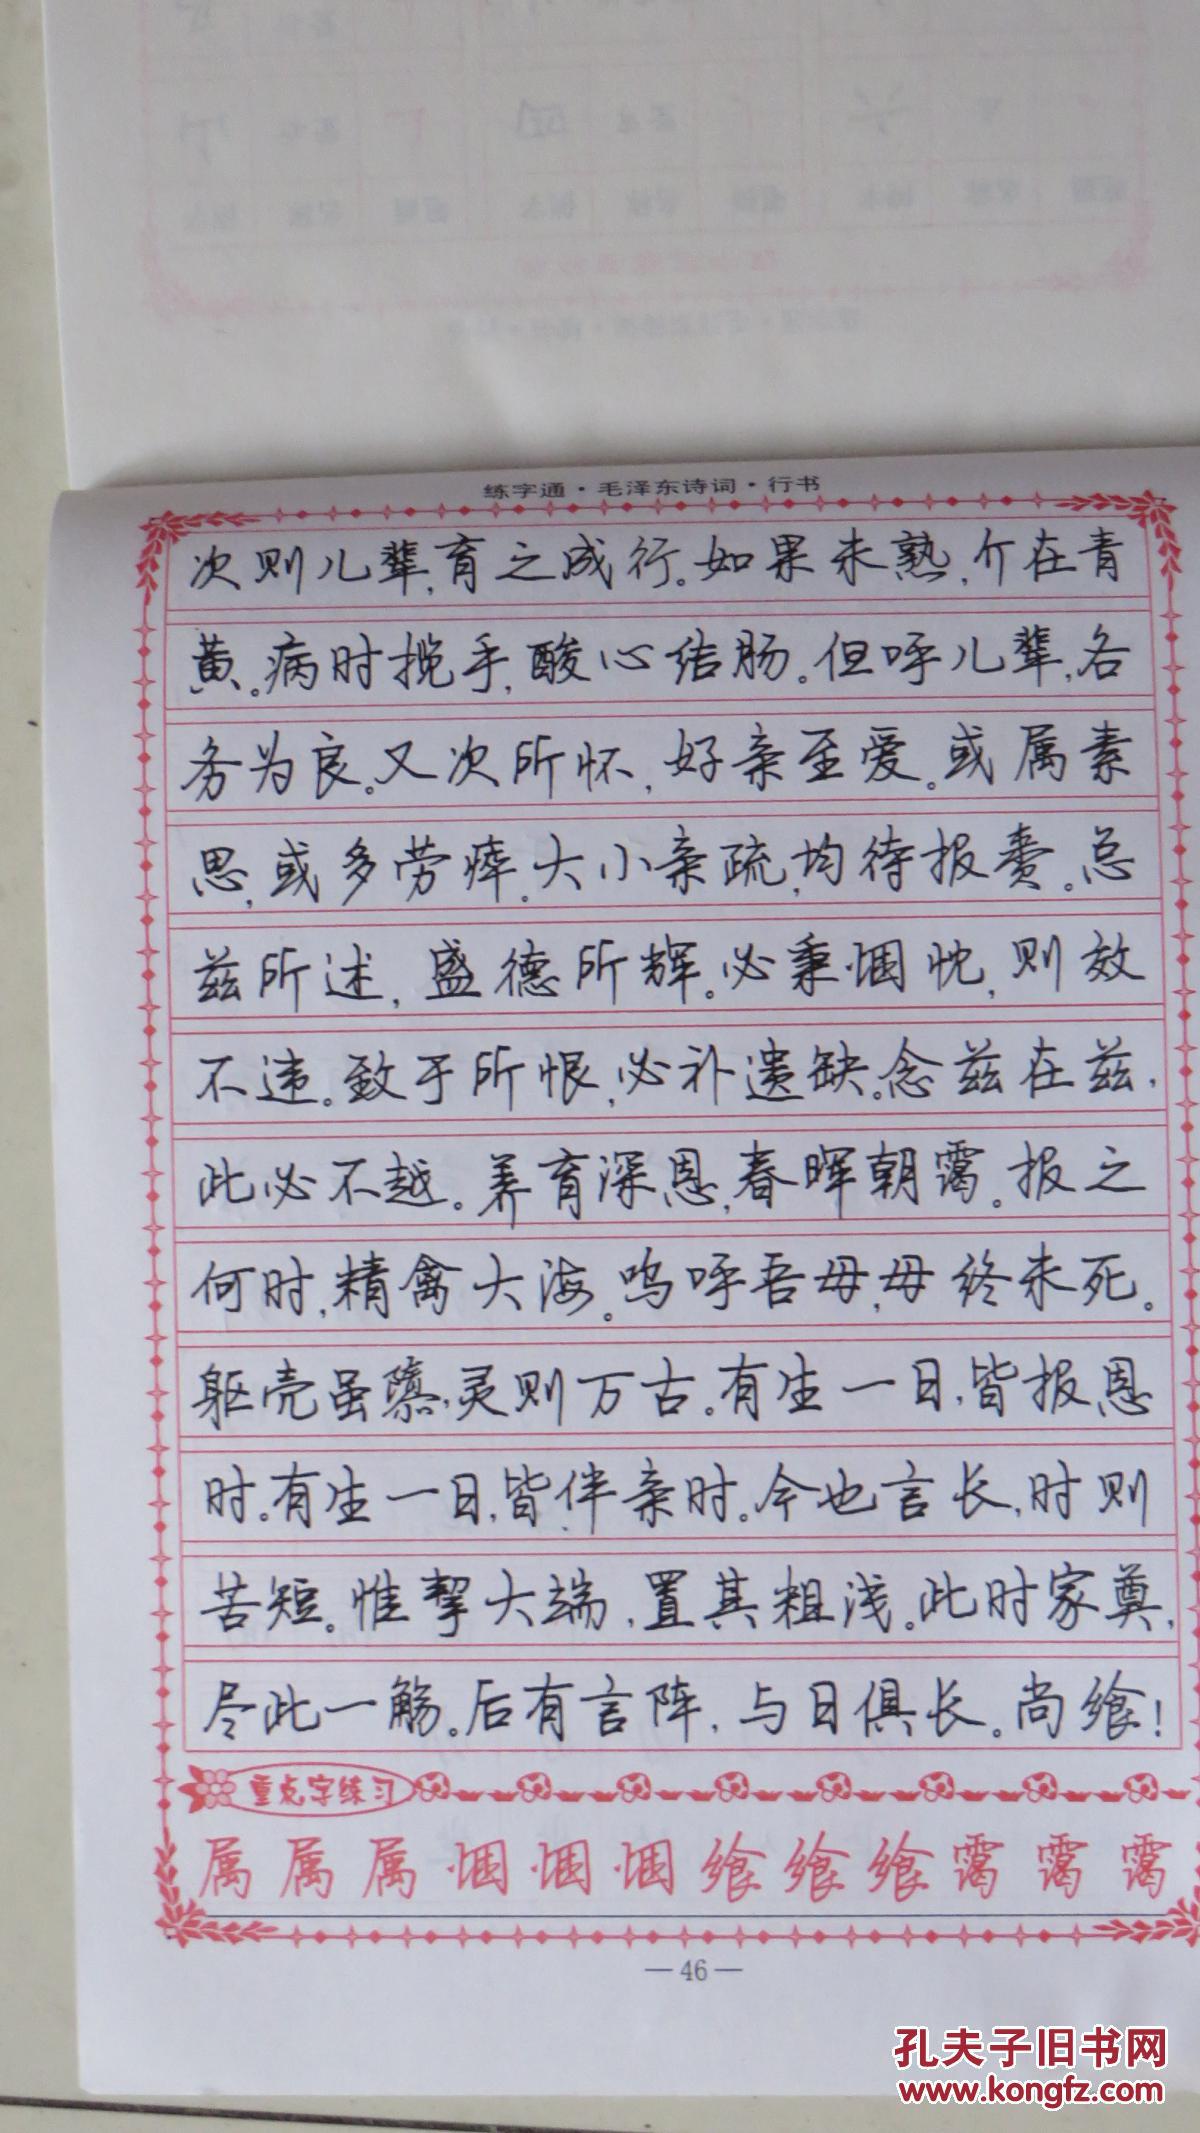 练字通·毛泽东诗词·行书
次则儿辈,育之成行。如果未熟,介在青
黄。病时揽手,酸心结肠。但呼儿辈,各
务为良。又次所怀,好亲至爱。或属素
思,或多劳瘁。大小亲疏,均待报赉。总
兹所述,盛德所辉。必秉悃忱,则效
不违。致于所恨,必补遗缺。念兹在兹,
此必不越。养育深恩,春晖朝霭。报之
何时,精禽大海。呜呼吾母,母终未死。
躯壳虽隳,灵则万古。有生一日,皆报恩
时。有生一日,皆伴亲时。今也言长,时则
苦短。惟挈大端,置其粗浅。此时家奠,
尽此一觞。后有言陈,与日俱长。尚飨!
重点字练习
属属属悃悃悃飨飨飨霭霭霭
—46—
孔夫子旧书网
www.kongfz.com